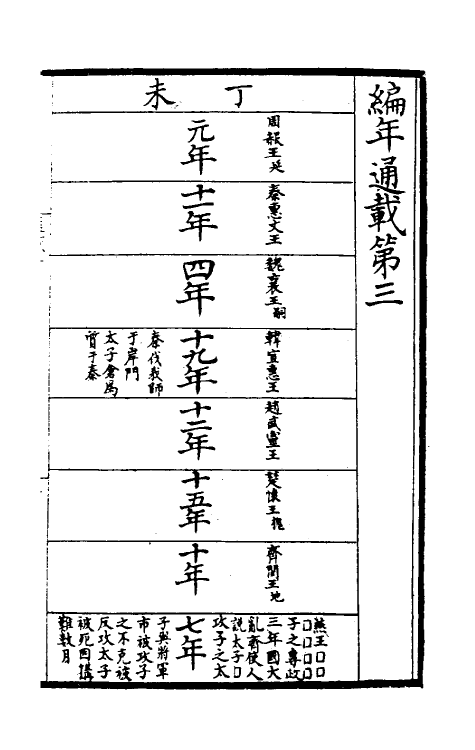 編年通載第三
丁未
周赧王延
元年
秦惠文王
十一年
魏襄王嗣
四年
韓宣惠王
十九年
秦伐我師
于岸門
太子倉爲
質于秦
趙武靈王
十二年
楚懷王槐
十五年
齊閔王地
十年
燕王□□
□□□□
子之專政
三年國大
亂齊使人
說太子□
攻子之太
七年
子與將軍
市被攻子
之不克被
反攻太子
被死因搆
難數月